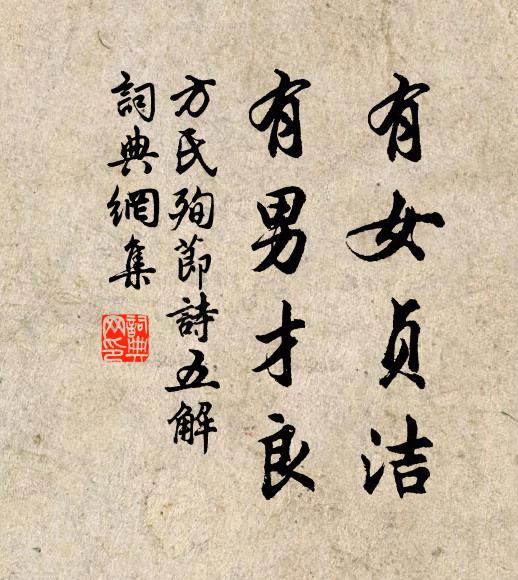 有女贞洁
有男才良
方氏殉節詩五解
詞典網集
詞典網印